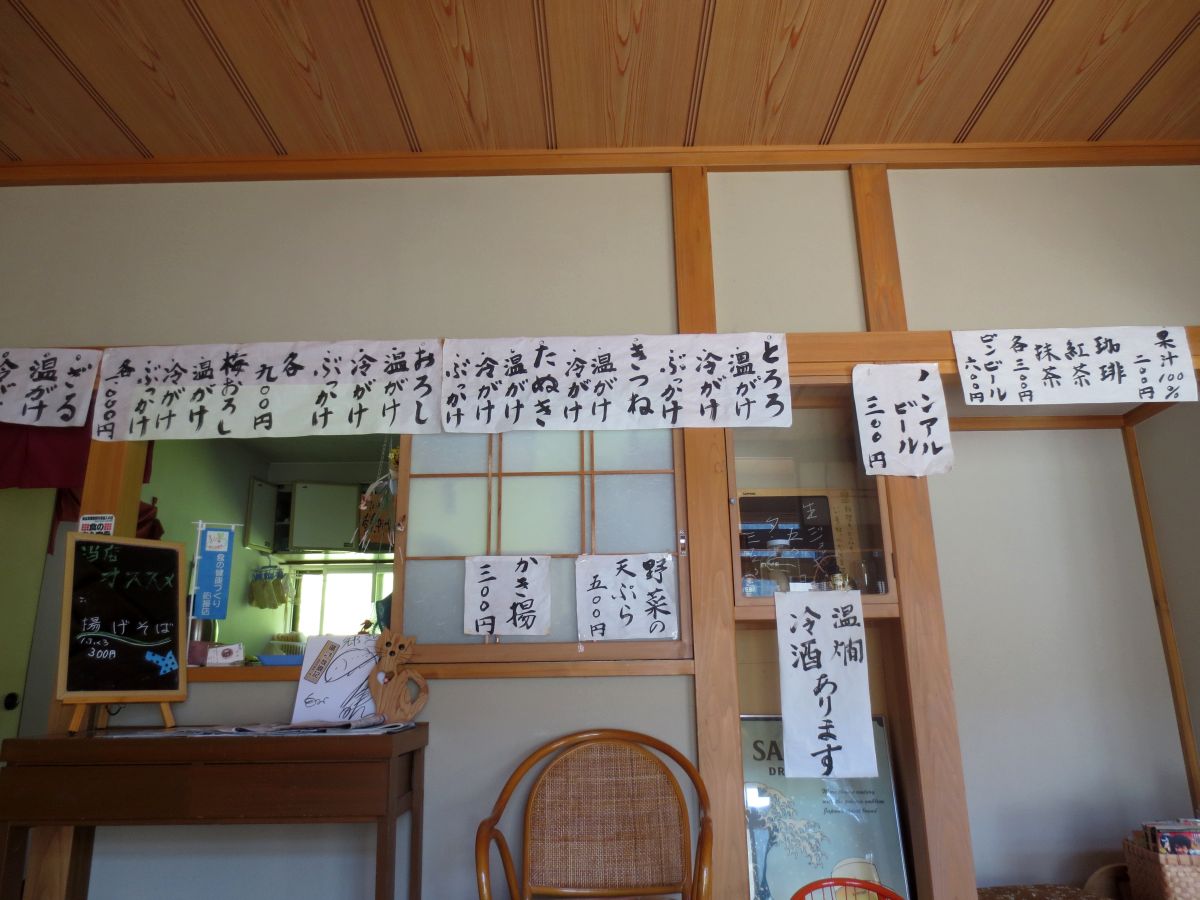 果汁100%
二〇〇円
珈琲
紅茶
抹茶
各三〇〇円
ビンビール
六〇〇円
ノンアル
ビール
三〇〇円
とろろ
温がけ
冷がけ
ぶっかけ
きつね
温がけ
冷がけ
たぬき
温がけ
冷がけ
ぶっかけ
おろし
温がけ
冷がけ
ぶっかけ
各
九〇〇円
梅おろし
温がけ
冷がけ
ぶっかけ
各一、〇〇〇円
ざる
温がけ
野菜の
天ぷら
五〇〇円
かき揚
三〇〇円
温燗
冷酒あります
当店
オススメ
揚げそば
300円
食の健康づくり
応援店